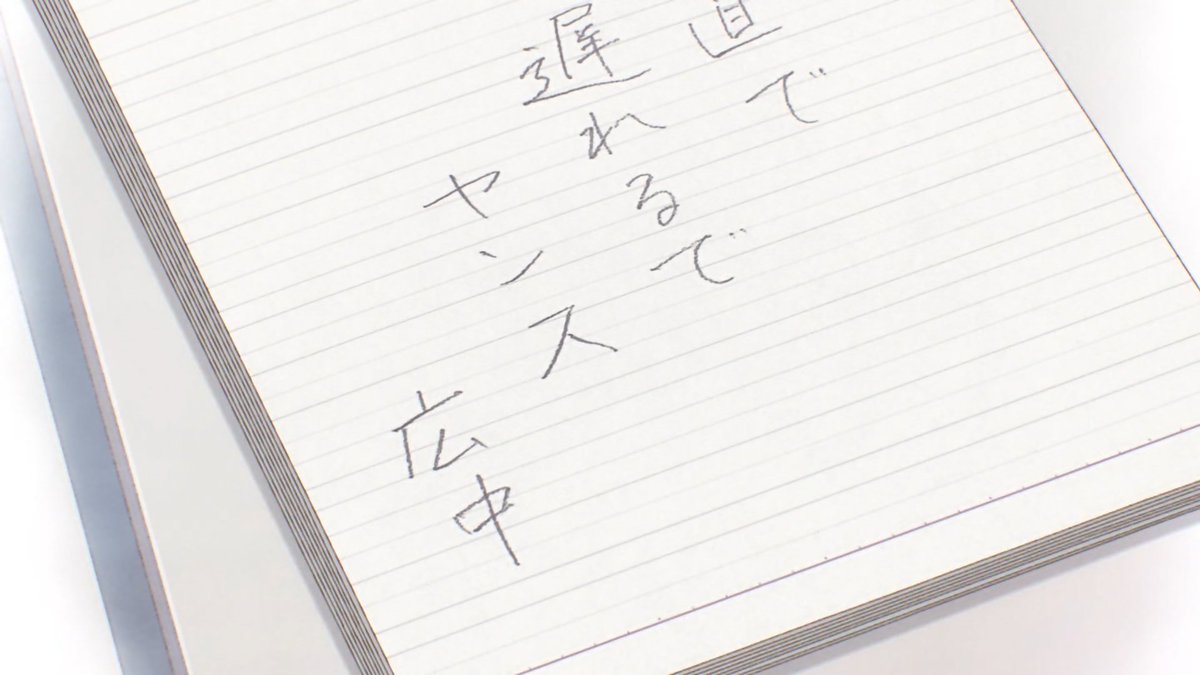 直で
遅れるで
ヤンス
広中